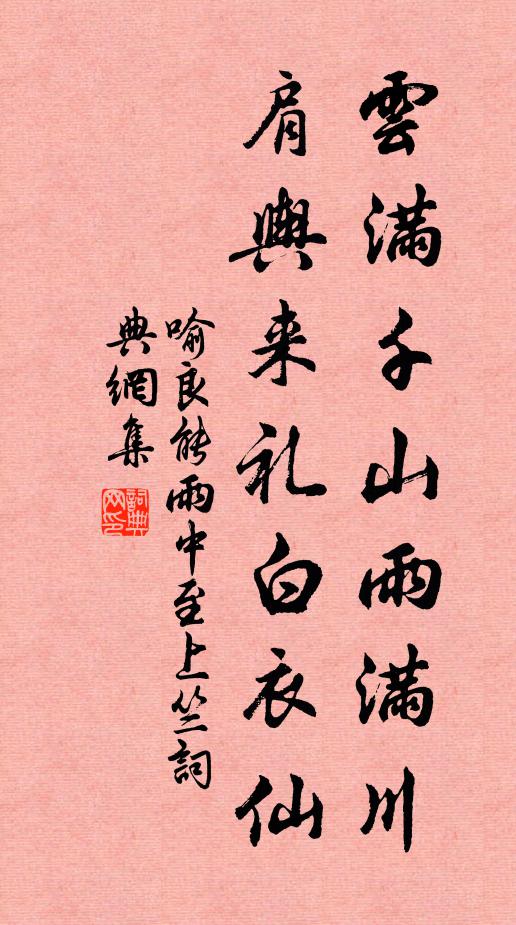 雲滿千山雨滿川
肩輿来礼白衣仙
喻良能雨中至上竺詞
典網集
詞典
网印